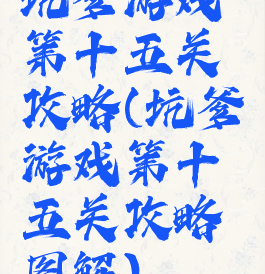 坑爹游戏
第十五关
攻略(坑爹
游戏第十
五关攻略
图解)